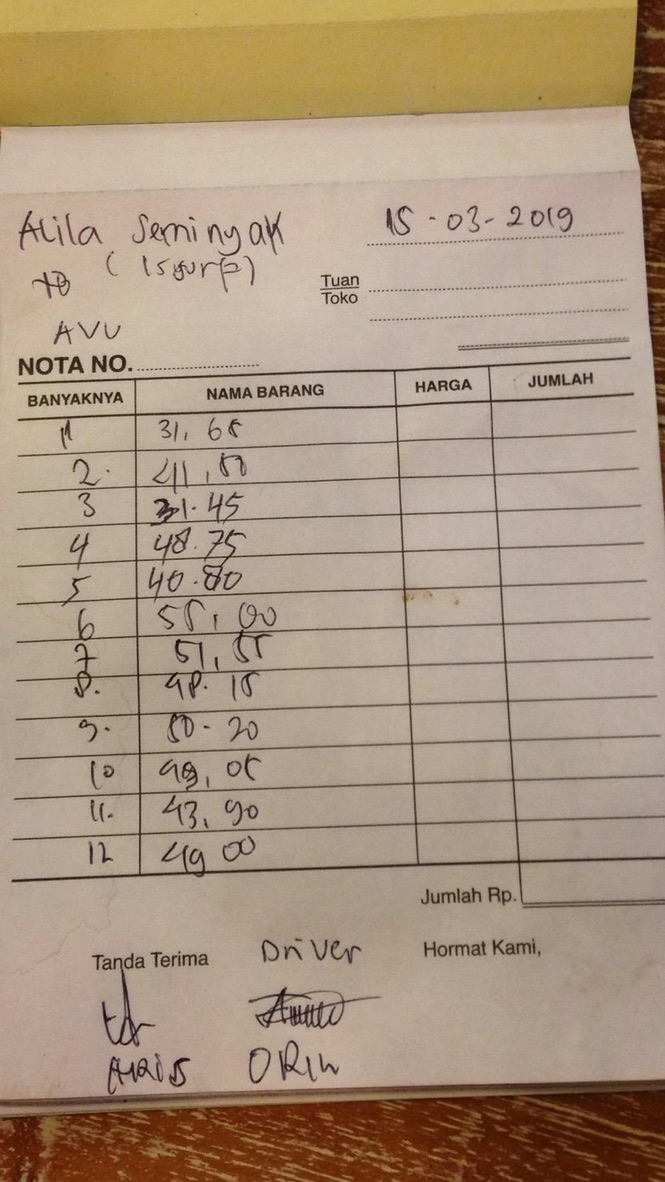 Alila Seminyak
15-03-2019
Tuan
Toko
AVU
NOTA NO.
BANYAKNYA NAMA BARANG HARGA JUMLAH
1 31,65
2. 41,50
3 31.45
4 48.75
5 40.80
6 55,00
7 51,55
8. 48.15
9. 50-20
10 49,05
11. 43,90
12 49 00
Jumlah Rp.
Tanda Terima Driver Hormat Kami,
ARIS ORIN